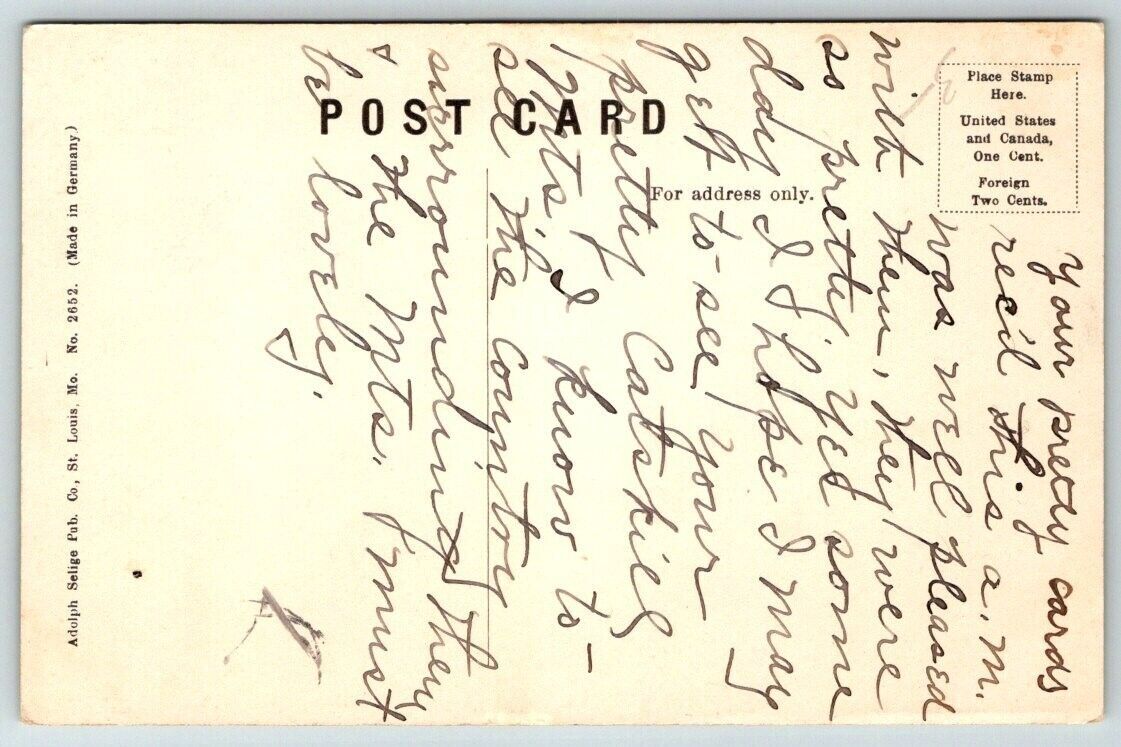 POST CARD
For address only.
Place Stamp
Here.
United States
and Canada,
One Cent.
Foreign
Two Cents.
Adolph Selige Pub. Co., St. Louis, Mo. No. 2652. (Made in Germany.)
Your pretty cards
rec'd this a.m.
was well pleased
with them, they were
so pretty, yes some
day I hope I may
get to see your
pretty Catskill
Mts. I know to
see the country
surrounding them
& the Mts. must
be lovely.